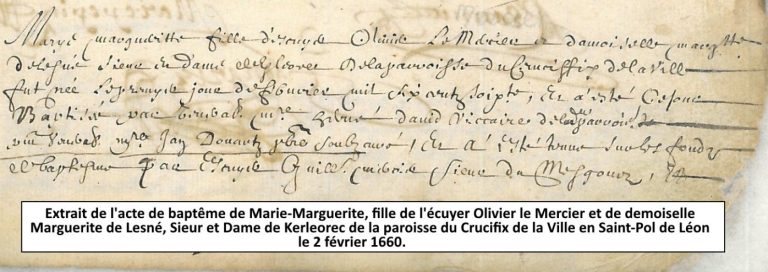 Marye margueritte fille d'escuyer Olivier Le Mercier et damoiselle margtte
de lesné sieur et dame de de la parroisse du Cruciffix de la Ville
fut nee le jour de mil six cents soixte, et a esté ce jour
Baptisé par mre david viccaire de lad parroisse
mre Jan pbre soubz, et a esté tenue sur les fondz
de baptesme par Escuyer sieur du Mesgouez,
Extrait de l'acte de baptême de Marie-Marguerite, fille de l'écuyer Olivier le Mercier et de demoiselle
Marguerite de Lesné, Sieur et Dame de Kerleorec de la paroisse du Crucifix de la Ville en Saint-Pol de Léon
le 2 février 1660.